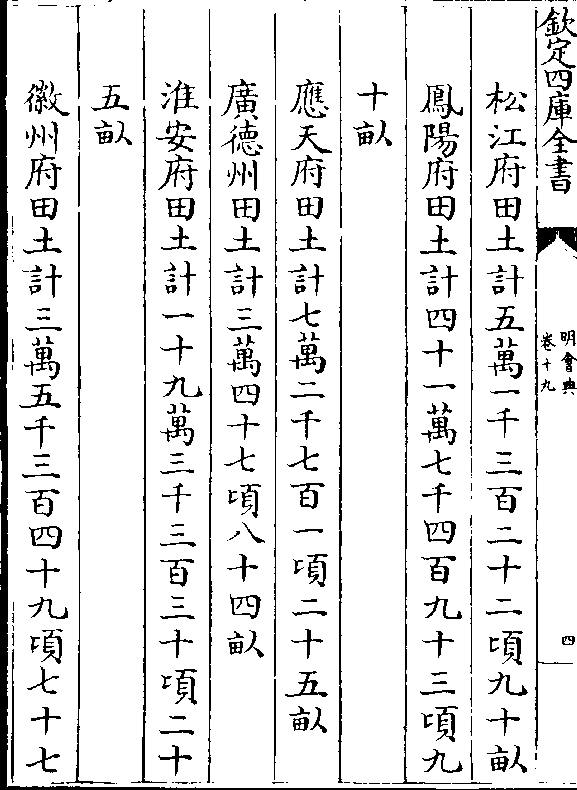 欽定四庫全書
明會典
卷十九
四
松江府田土計五萬一千三百二十二頃九十畝
鳳陽府田土計四十一萬七千四百九十三頃九
十畝
應天府田土計七萬二千七百一頃二十五畝
廣德州田土計三萬四十七頃八十四畝
淮安府田土計一十九萬三千三百三十頃二十
五畝
徽州府田土計三萬五千三百四十九頃七十七